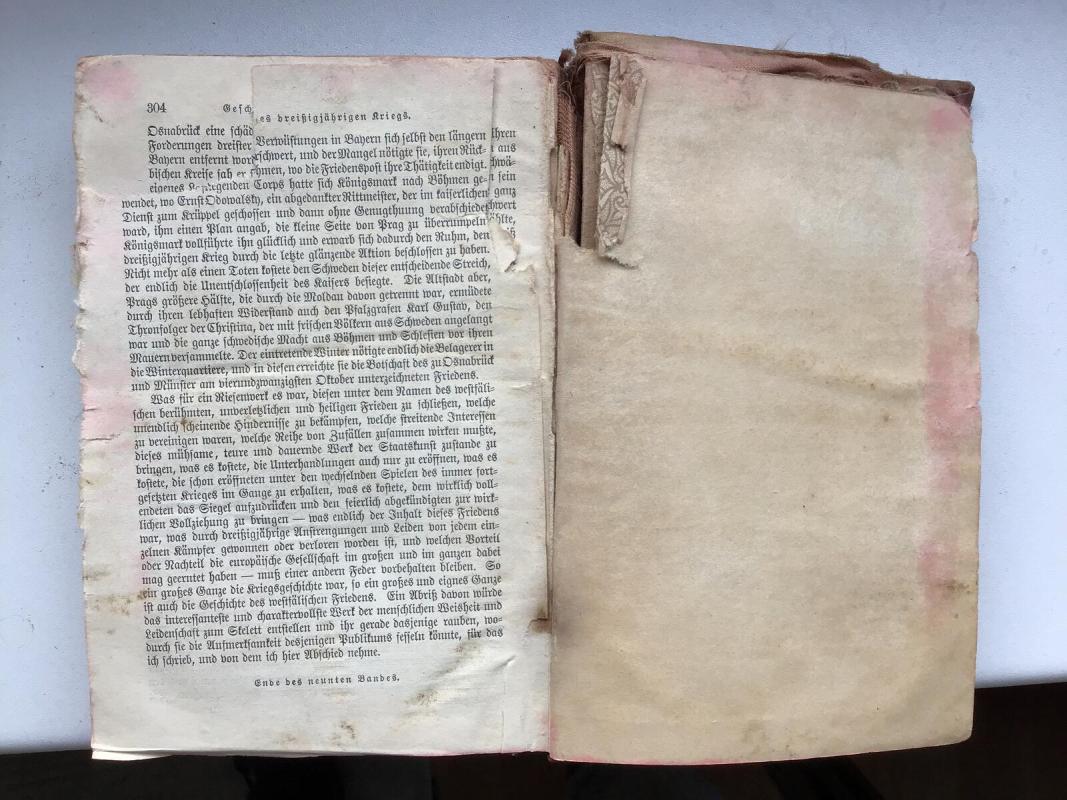 304 Gesch
es dreißigjährigen Kriegs.
Osnabrück eine schäd Verwüstungen in Bayern sich selbst den längern ihren
Forderungen dreister rschwert, und der Mangel nötigte sie, ihren Rück- aus
Bayern entfernt wor hmen, wo die Friedenspost ihre Thätigkeit endigt. chwä-
bischen Kreise sah er
eigenes rgenden Corps hatte sich Königsmark nach Böhmen ge- sein
wendet, wo Ernst Odowalsky, ein abgedankter Rittmeister, der im kaiserlichen ganz
Dienst zum Krüppel geschossen und dann ohne Genugthuung verabschiedet chwert
ward, ihm einen Plan angab, die kleine Seite von Prag zu überrumpeln. öhlte,
Königsmark vollführte ihn glücklich und erwarb sich dadurch den Ruhm, den
dreißigjährigen Krieg durch die letzte glänzende Aktion beschlossen zu haben.
Nicht mehr als einen Toten kostete den Schweden dieser entscheidende Streich,
der endlich die Unentschlossenheit des Kaisers besiegte. Die Altstadt aber,
Prags größere Hälfte, die durch die Moldau davon getrennt war, ermüdete
durch ihren lebhaften Widerstand auch den Pfalzgrafen Karl Gustav, den
Thronfolger der Christina, der mit frischen Völkern aus Schweden angelangt
war und die ganze schwedische Macht aus Böhmen und Schlesien vor ihren
Mauern versammelte. Der eintretende Winter nötigte endlich die Belagerer in
die Winterquartiere, und in diesen erreichte sie die Botschaft des zu Osnabrück
und Münster am vierundzwanzigsten Oktober unterzeichneten Friedens.
Was für ein Riesenwerk es war, diesen unter dem Namen des westfäli-
schen berühmten, unverletzlichen und heiligen Frieden zu schließen, welche
unendlich scheinende Hindernisse zu bekämpfen, welche streitende Interessen
zu vereinigen waren, welche Reihe von Zufällen zusammen wirken mußte,
dieses mühsame, teure und dauernde Werk der Staatskunst zustande zu
bringen, was es kostete, die Unterhandlungen auch nur zu eröffnen, was es
kostete, die schon eröffneten unter den wechselnden Spielen des immer fort-
gesetzten Krieges im Gange zu erhalten, was es kostete, dem wirklich voll-
endeten das Siegel aufzudrücken und den feierlich abgekündigten zur wirk-
lichen Vollziehung zu bringen — was endlich der Inhalt dieses Friedens
war, was durch dreißigjährige Anstrengungen und Leiden von jedem ein-
zelnen Kämpfer gewonnen oder verloren worden ist, und welchen Vorteil
oder Nachteil die europäische Gesellschaft im großen und im ganzen dabei
mag geerntet haben — muß einer andern Feder vorbehalten bleiben. So
ein großes Ganze die Kriegsgeschichte war, so ein großes und eignes Ganze
ist auch die Geschichte des westfälischen Friedens. Ein Abriß davon würde
das interessanteste und charaktervollste Werk der menschlichen Weisheit und
Leidenschaft zum Skelett entstellen und ihr gerade dasjenige rauben, wo-
durch sie die Aufmerksamkeit desjenigen Publikums fesseln könnte, für das
ich schrieb, und von dem ich hier Abschied nehme.
Ende des neunten Bandes.